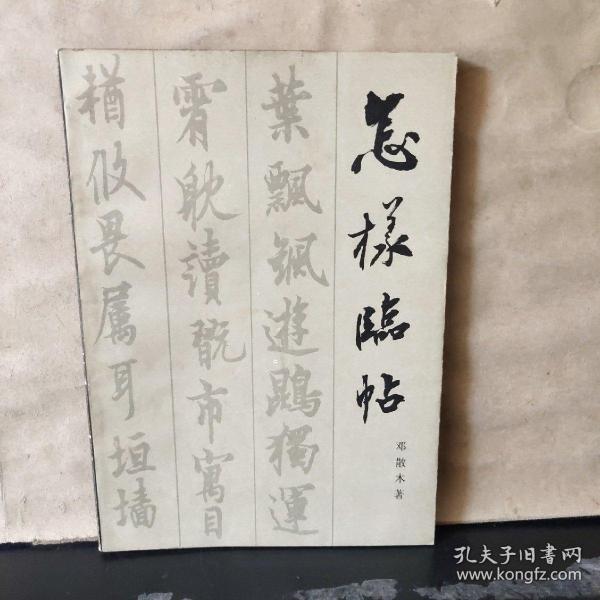 怎樣臨帖
邓散木著
葉飄飖遊鵾獨運
宵耽讀翫市寓目
輶攸畏屬耳垣墻
孔夫子旧书网
www.kongfz.com